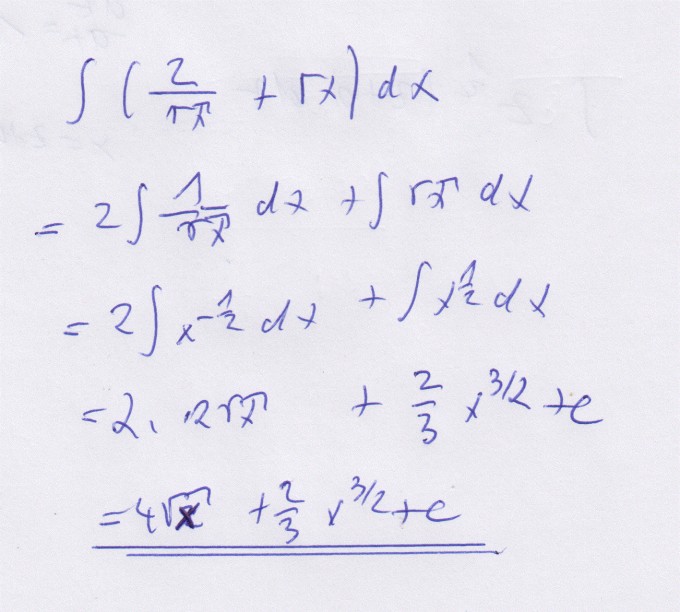 ∫ (2/√x + √x) dx
= 2 ∫ 1/√x dx + ∫ √x dx
= 2 ∫ x^(-1/2) dx + ∫ x^(1/2) dx
= 2 · 2√x + 2/3 x^(3/2) + c
= 4√x + 2/3 x^(3/2) + c